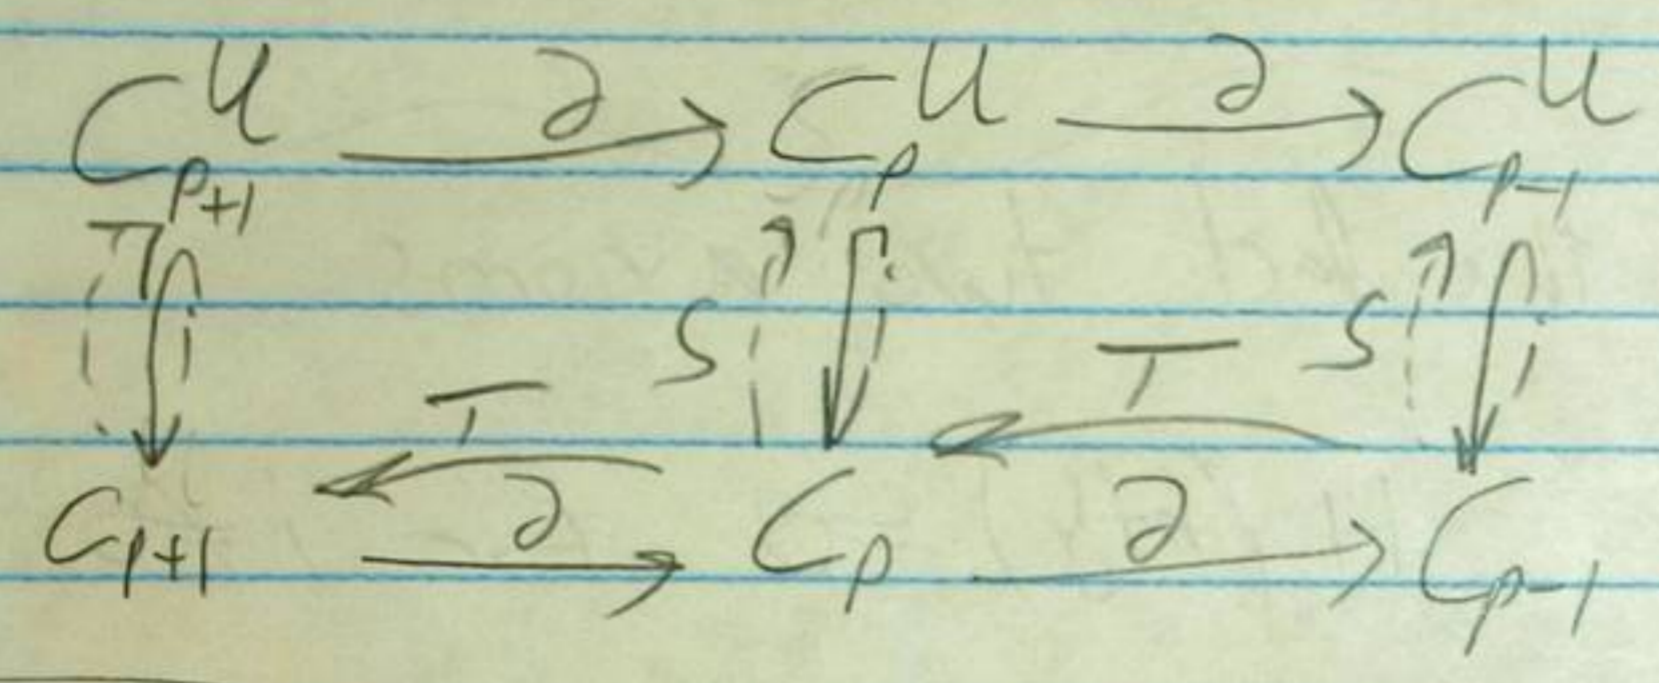 C_{p+1}^U ∂→ C_p^U ∂→ C_{p-1}^U
i S i T S i
T
C_{p+1} ∂→ C_p ∂→ C_{p-1}